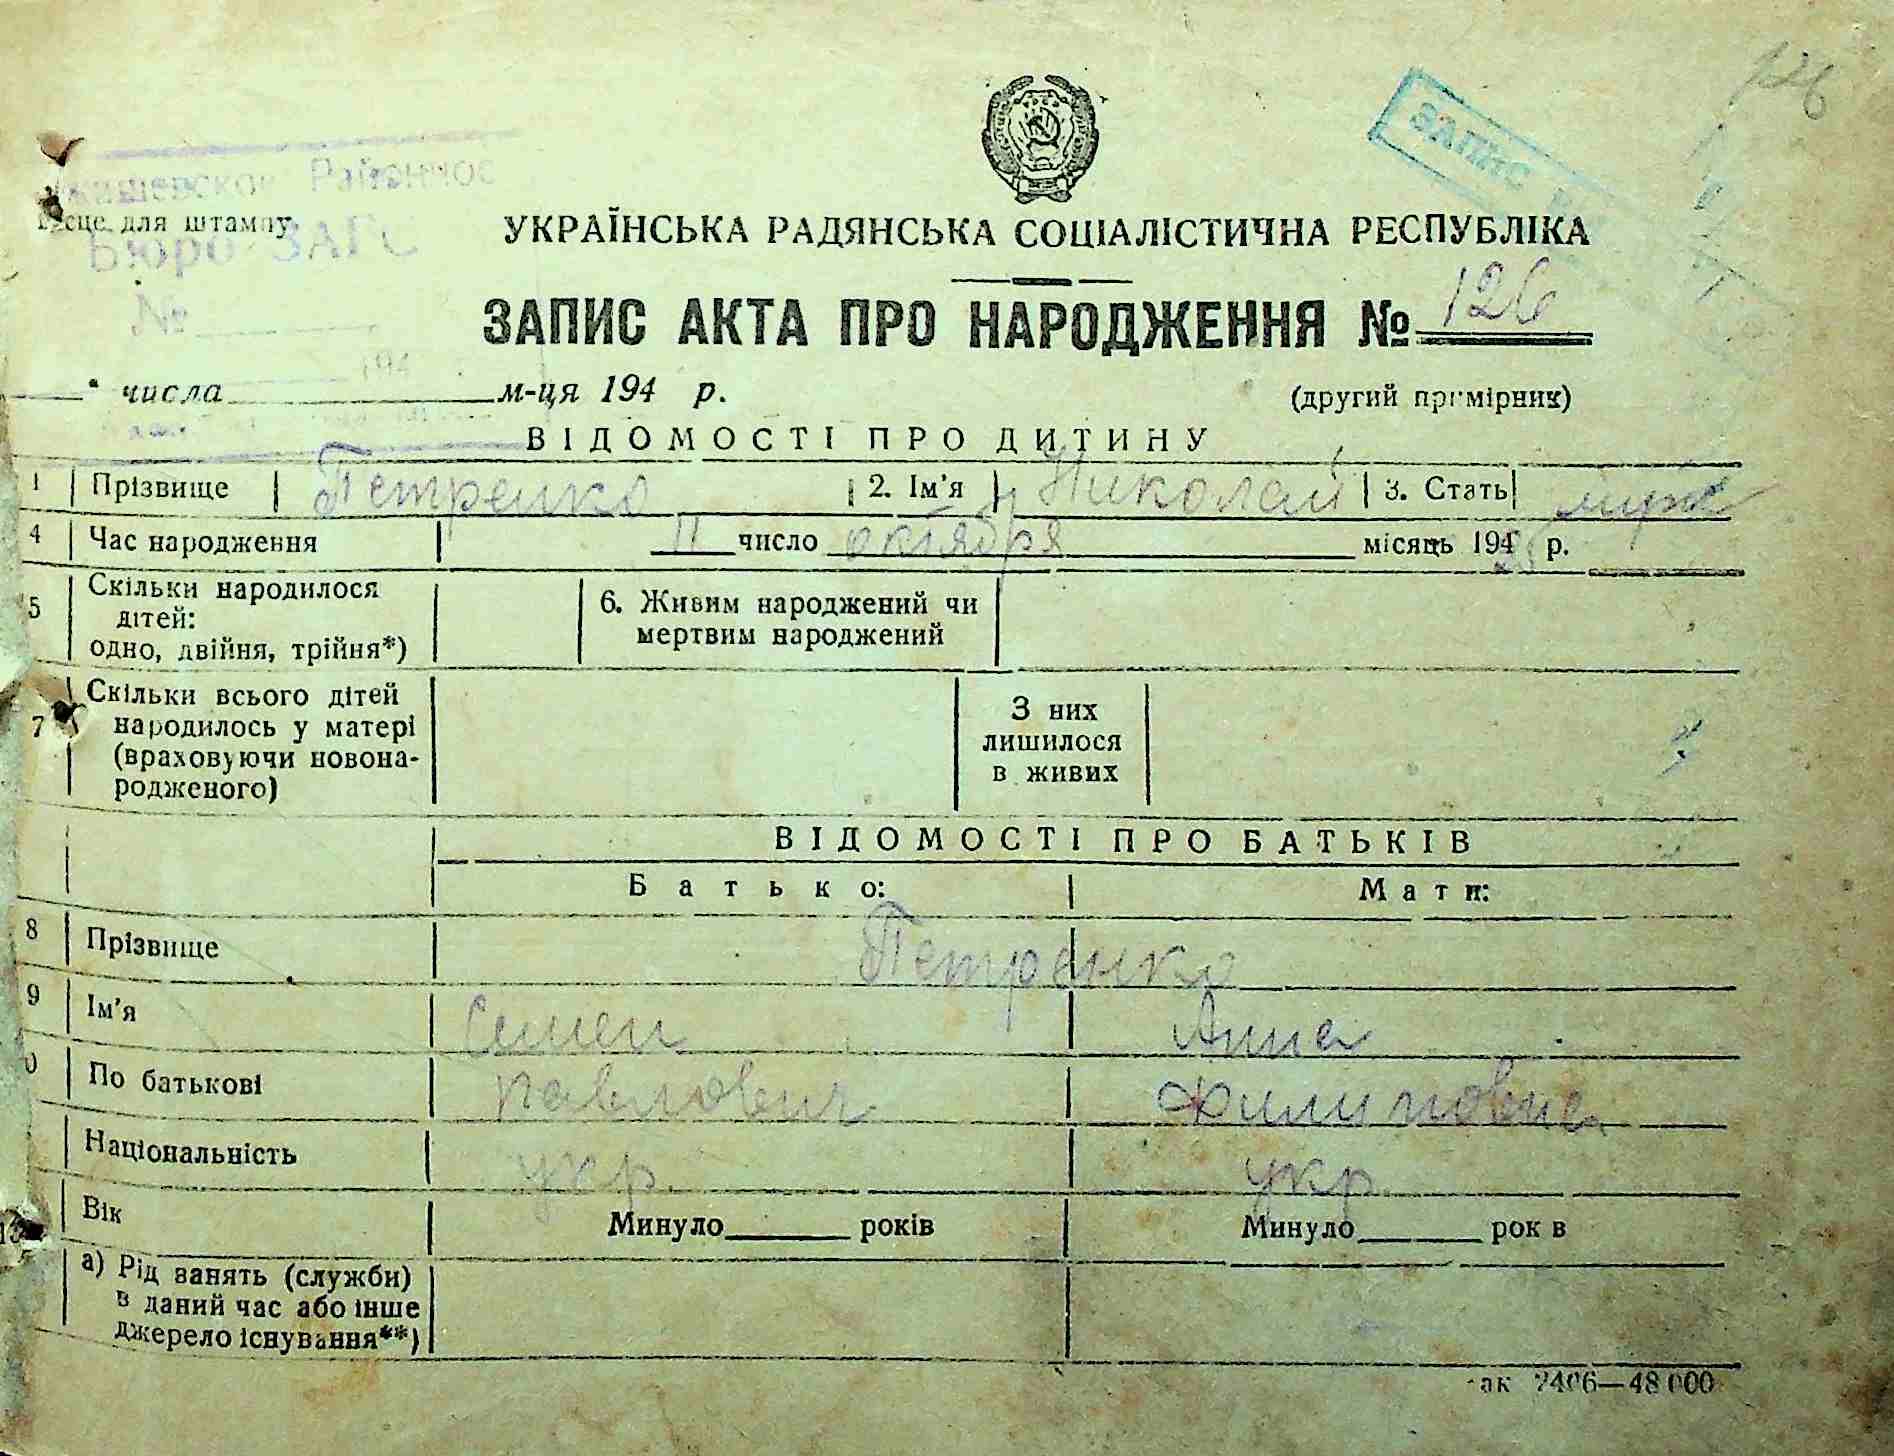 126
ЗАПИС
Районное
Місце для штампу
Бюро ЗАГС
№
194
УКРАЇНСЬКА РАДЯНСЬКА СОЦІАЛІСТИЧНА РЕСПУБЛІКА
ЗАПИС АКТА ПРО НАРОДЖЕННЯ № 126
числа м-ця 194 р. (другий примірник)
ВІДОМОСТІ ПРО ДИТИНУ
1 Прізвище Петренко 2. Ім'я Николай 3. Стать муж
4 Час народження 11 число октября місяць 194 р.
5 Скільки народилося дітей: одно, двійня, трійня*) 6. Живим народжений чи мертвим народжений
7 Скільки всього дітей народилось у матері (враховуючи новонародженого) З них лишилося в живих
ВІДОМОСТІ ПРО БАТЬКІВ
Батько: Мати:
8 Прізвище Петренко
9 Ім'я Семен Анна
0 По батькові Павлович Филиповна
Національність укр. укр
13 Вік Минуло років Минуло рок в
а) Рід занять (служби) в даний час або інше джерело існування**)
ак 2406—48 000